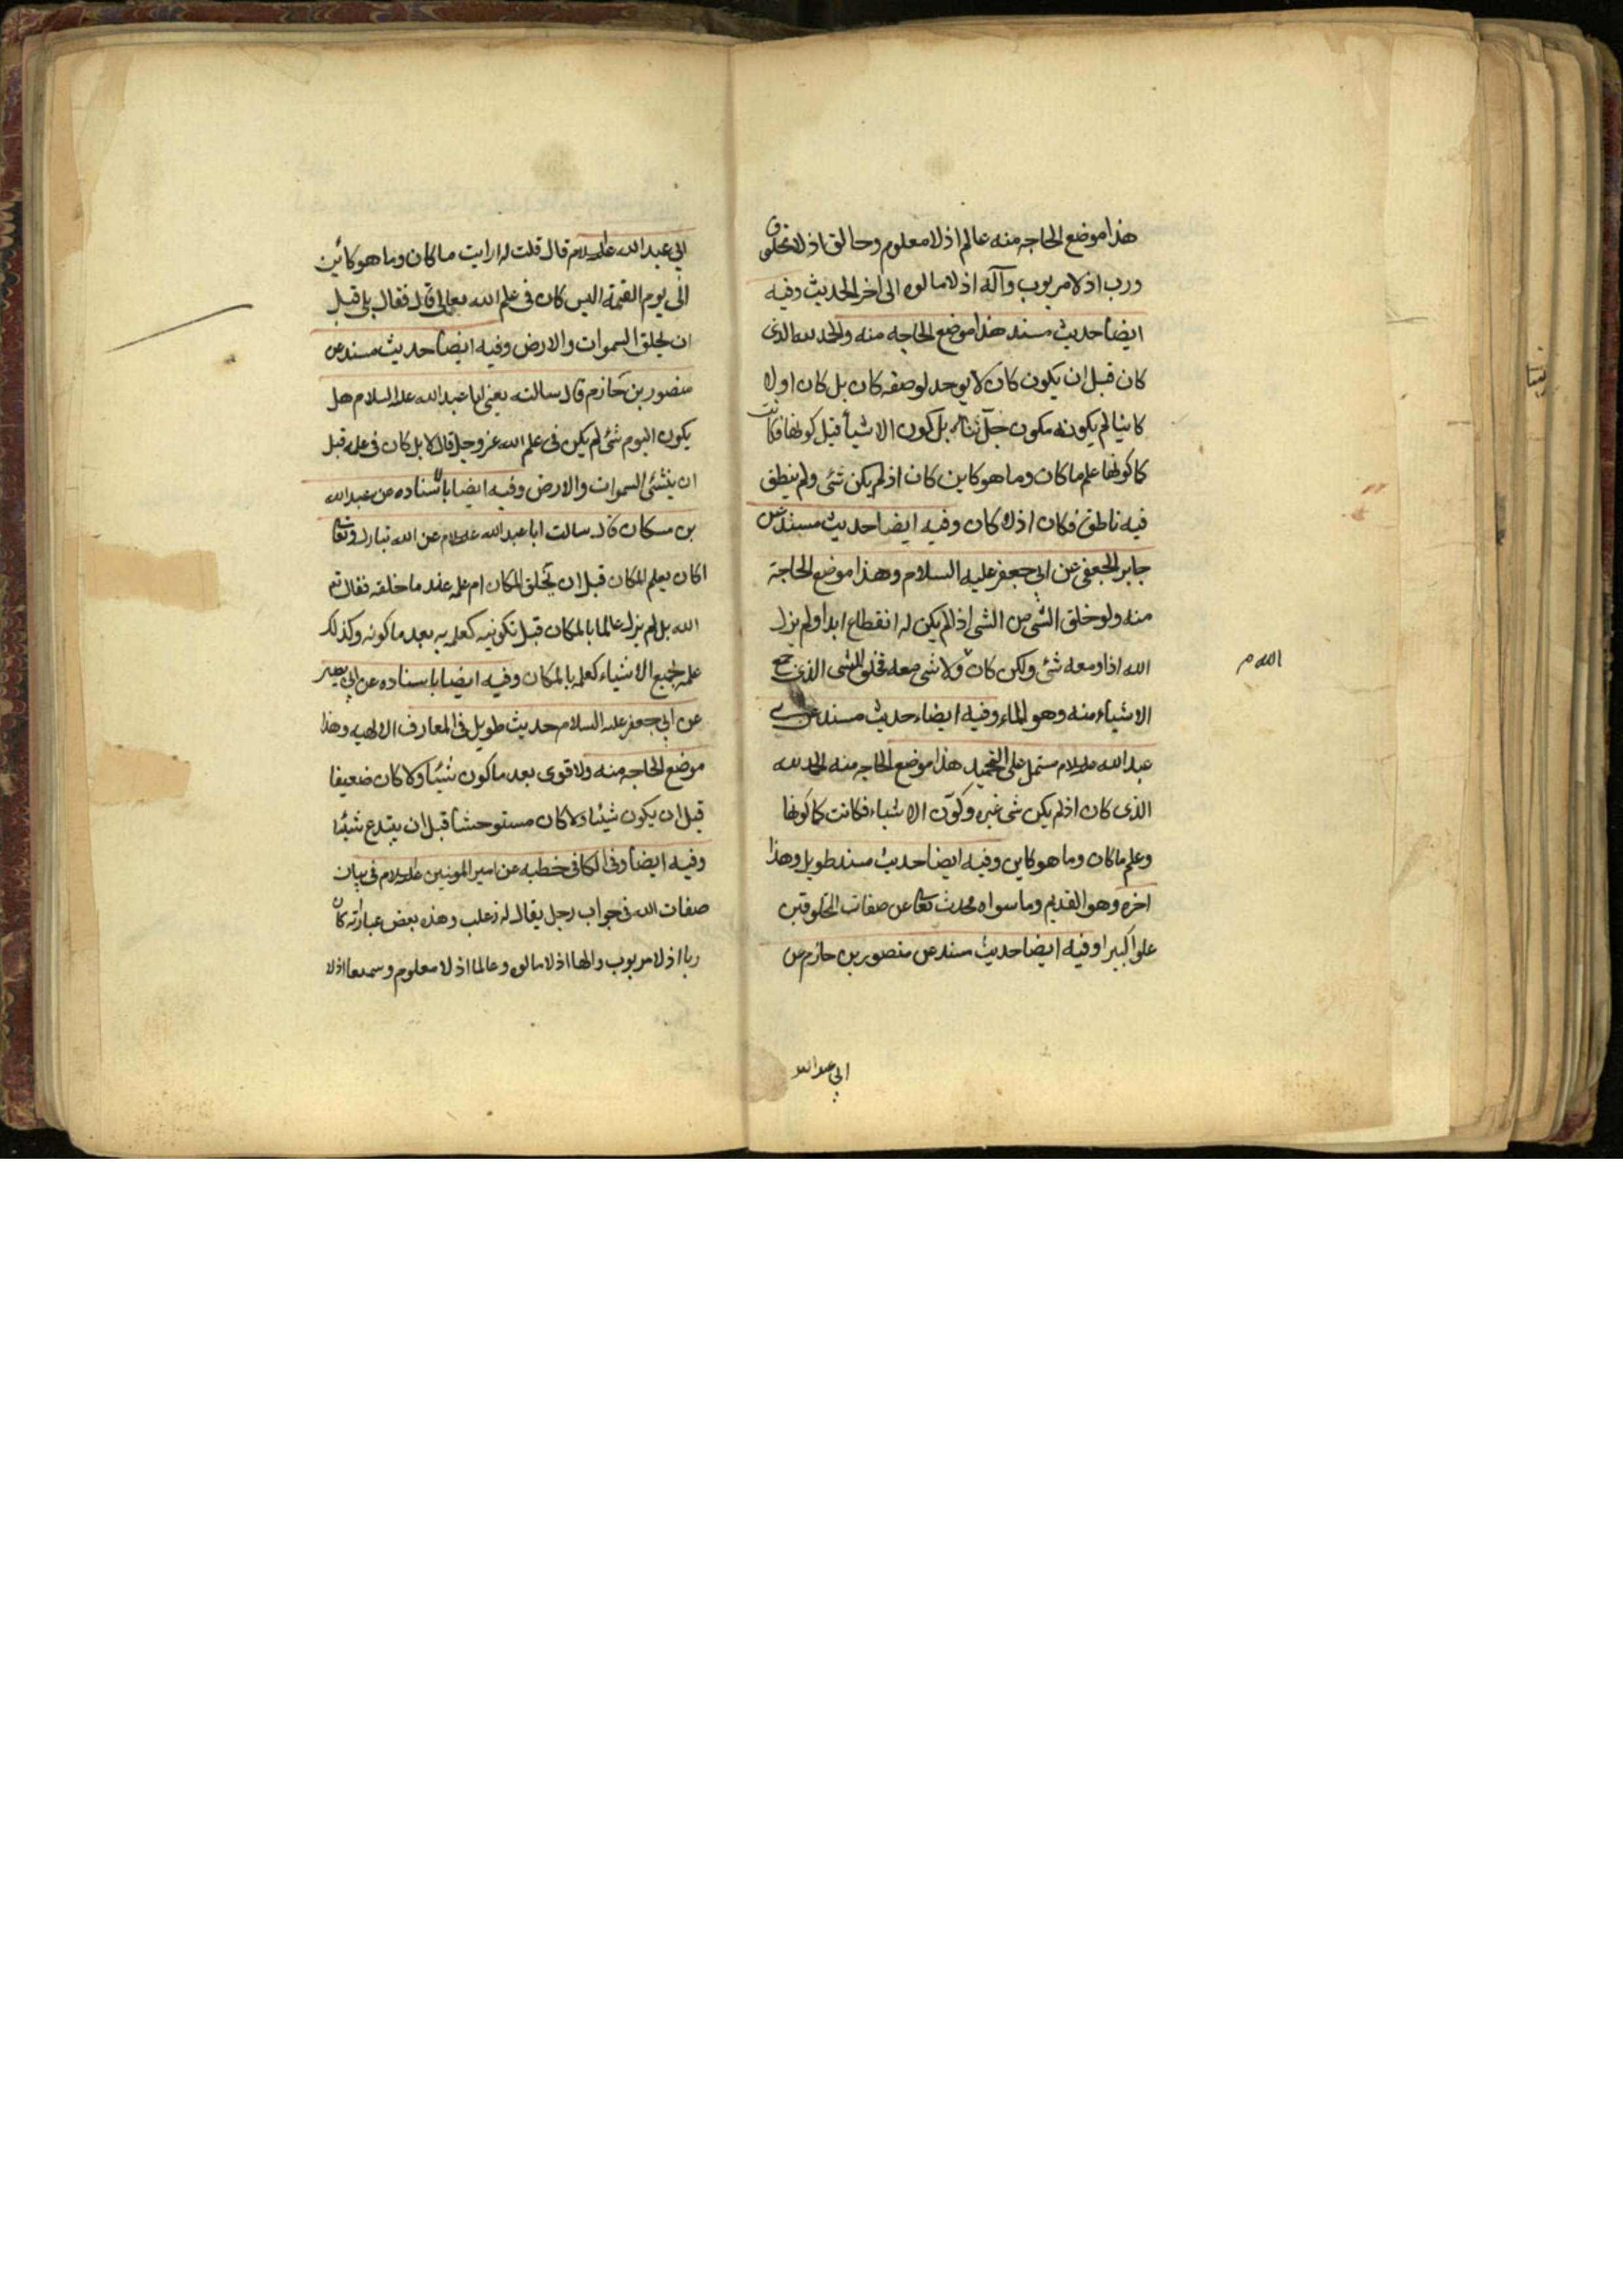 هذا موضع الحاجه منه عالم اذ لا معلوم وخالق اذ لا مخلوق
ورب اذ لا مربوب وآله اذ لا مالوه الى اخر الحديث وفيه
ايضا حديث مسند هذا موضع الحاجه منه والحمد لله الذى
كان قبل ان يكون كان لا يوجد لوصفه كان بل كان اولا
كائنا لم يكونه مكون جل ثناؤه بل كون الاشيأ قبل كونها فكانت
كما كونها علم ما كان وما هو كاين كان اذ لم يكن شئ ولم ينطق
فيه ناطق فكان اذ لا كان وفيه ايضا حديث مسند عن
جابر الجعفى عن ابى جعفر عليه السلام وهذا موضع الحاجة
منه ولو خلق الشى من الشى اذا لم يكن له انقطاع ابدا ولم يزل
الله اذا ومعه شئ ولكن كان ولا شى معه فخلق الشى الذى جميع
الله م
الاشياء منه وهو الماء وفيه ايضا حديث مسند عن
عبد الله عليه السلام مشتمل على التحميد هذا موضع الحاجه منه الحمد لله
الذى كان اذ لم يكن شى غيره وكوّن الاشياء فكانت كما كونها
وعلم ما كان وما هو كاين وفيه ايضا حديث مسند طويل وهذا
اخره وهو القديم وما سواه محدث تعا عن صفات المخلوقين
علوا كبيرا وفيه ايضا حديث مسند عن منصور بن حازم عن
ابى عبد الله
ابى عبد الله عليه السلام قال قلت له ارايت ما كان وما هو كائن
الى يوم القيمة اليس كان فى علم الله تعالى قال فقال بلى قبل
ان يخلق السموات والارض وفيه ايضا حديث مسند عن
منصور بن حازم قال سالته يعنى ابا عبد الله عليه السلام هل
يكون اليوم شئ لم يكن فى علم الله عز وجل قال لا بل كان فى علمه قبل
ان ينشئ السموات والارض وفيه ايضا باسناده عن عبد الله
بن مسكان قال سالت ابا عبد الله عليه السلام عن الله تبارك وتعا
اكان يعلم المكان قبل ان يخلق المكان ام علمه عند ما خلقه فقال تع
الله بل لم يزل عالما بالمكان قبل تكوينه كعلمه به بعد ما كونه وكذلك
علمه بجميع الاشياء كعلمه بالمكان وفيه ايضا باسناده عن ابى بصير
عن ابى جعفر عليه السلام حديث طويل فى المعارف الالهيه وهذا
موضع الحاجه منه ولا قوى بعد ما كون شيئا ولا كان ضعيفا
قبل ان يكون شيئا ولا كان مستوحشا قبل ان يبتدع شيئا
وفيه ايضا وفى الكافى خطبه عن امير المومنين عليه السلام فى بيان
صفات الله فى جواب رجل يقال له ذعلب وهذه بعض عباراته كان
ربا اذ لا مربوب والها اذ لا مالوه وعالما اذ لا معلوم وسميعا اذ لا